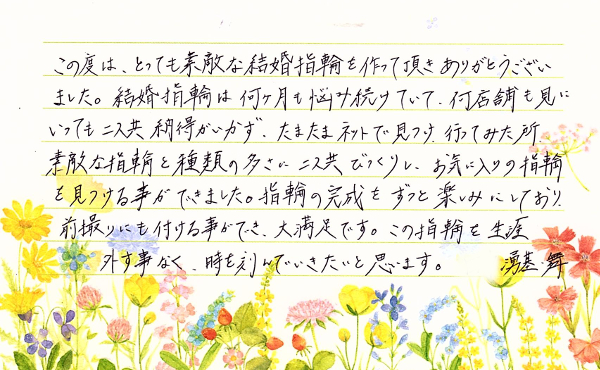 この度は、とっても素敵な結婚指輪を作って頂きありがとうござい
ました。結婚指輪は何ヶ月も悩み続けていて、何店舗も見に
いっても二人共納得がいかず、たまたまネットで見つけ、行ってみた所
素敵な指輪と種類の多さに二人共びっくりし、お気に入りの指輪
を見つける事ができました。指輪の完成をずっと楽しみにしており
前撮りにも付ける事ができ、大満足です。この指輪を生涯
外す事なく、時を刻んでいきたいと思います。 湧基・舞